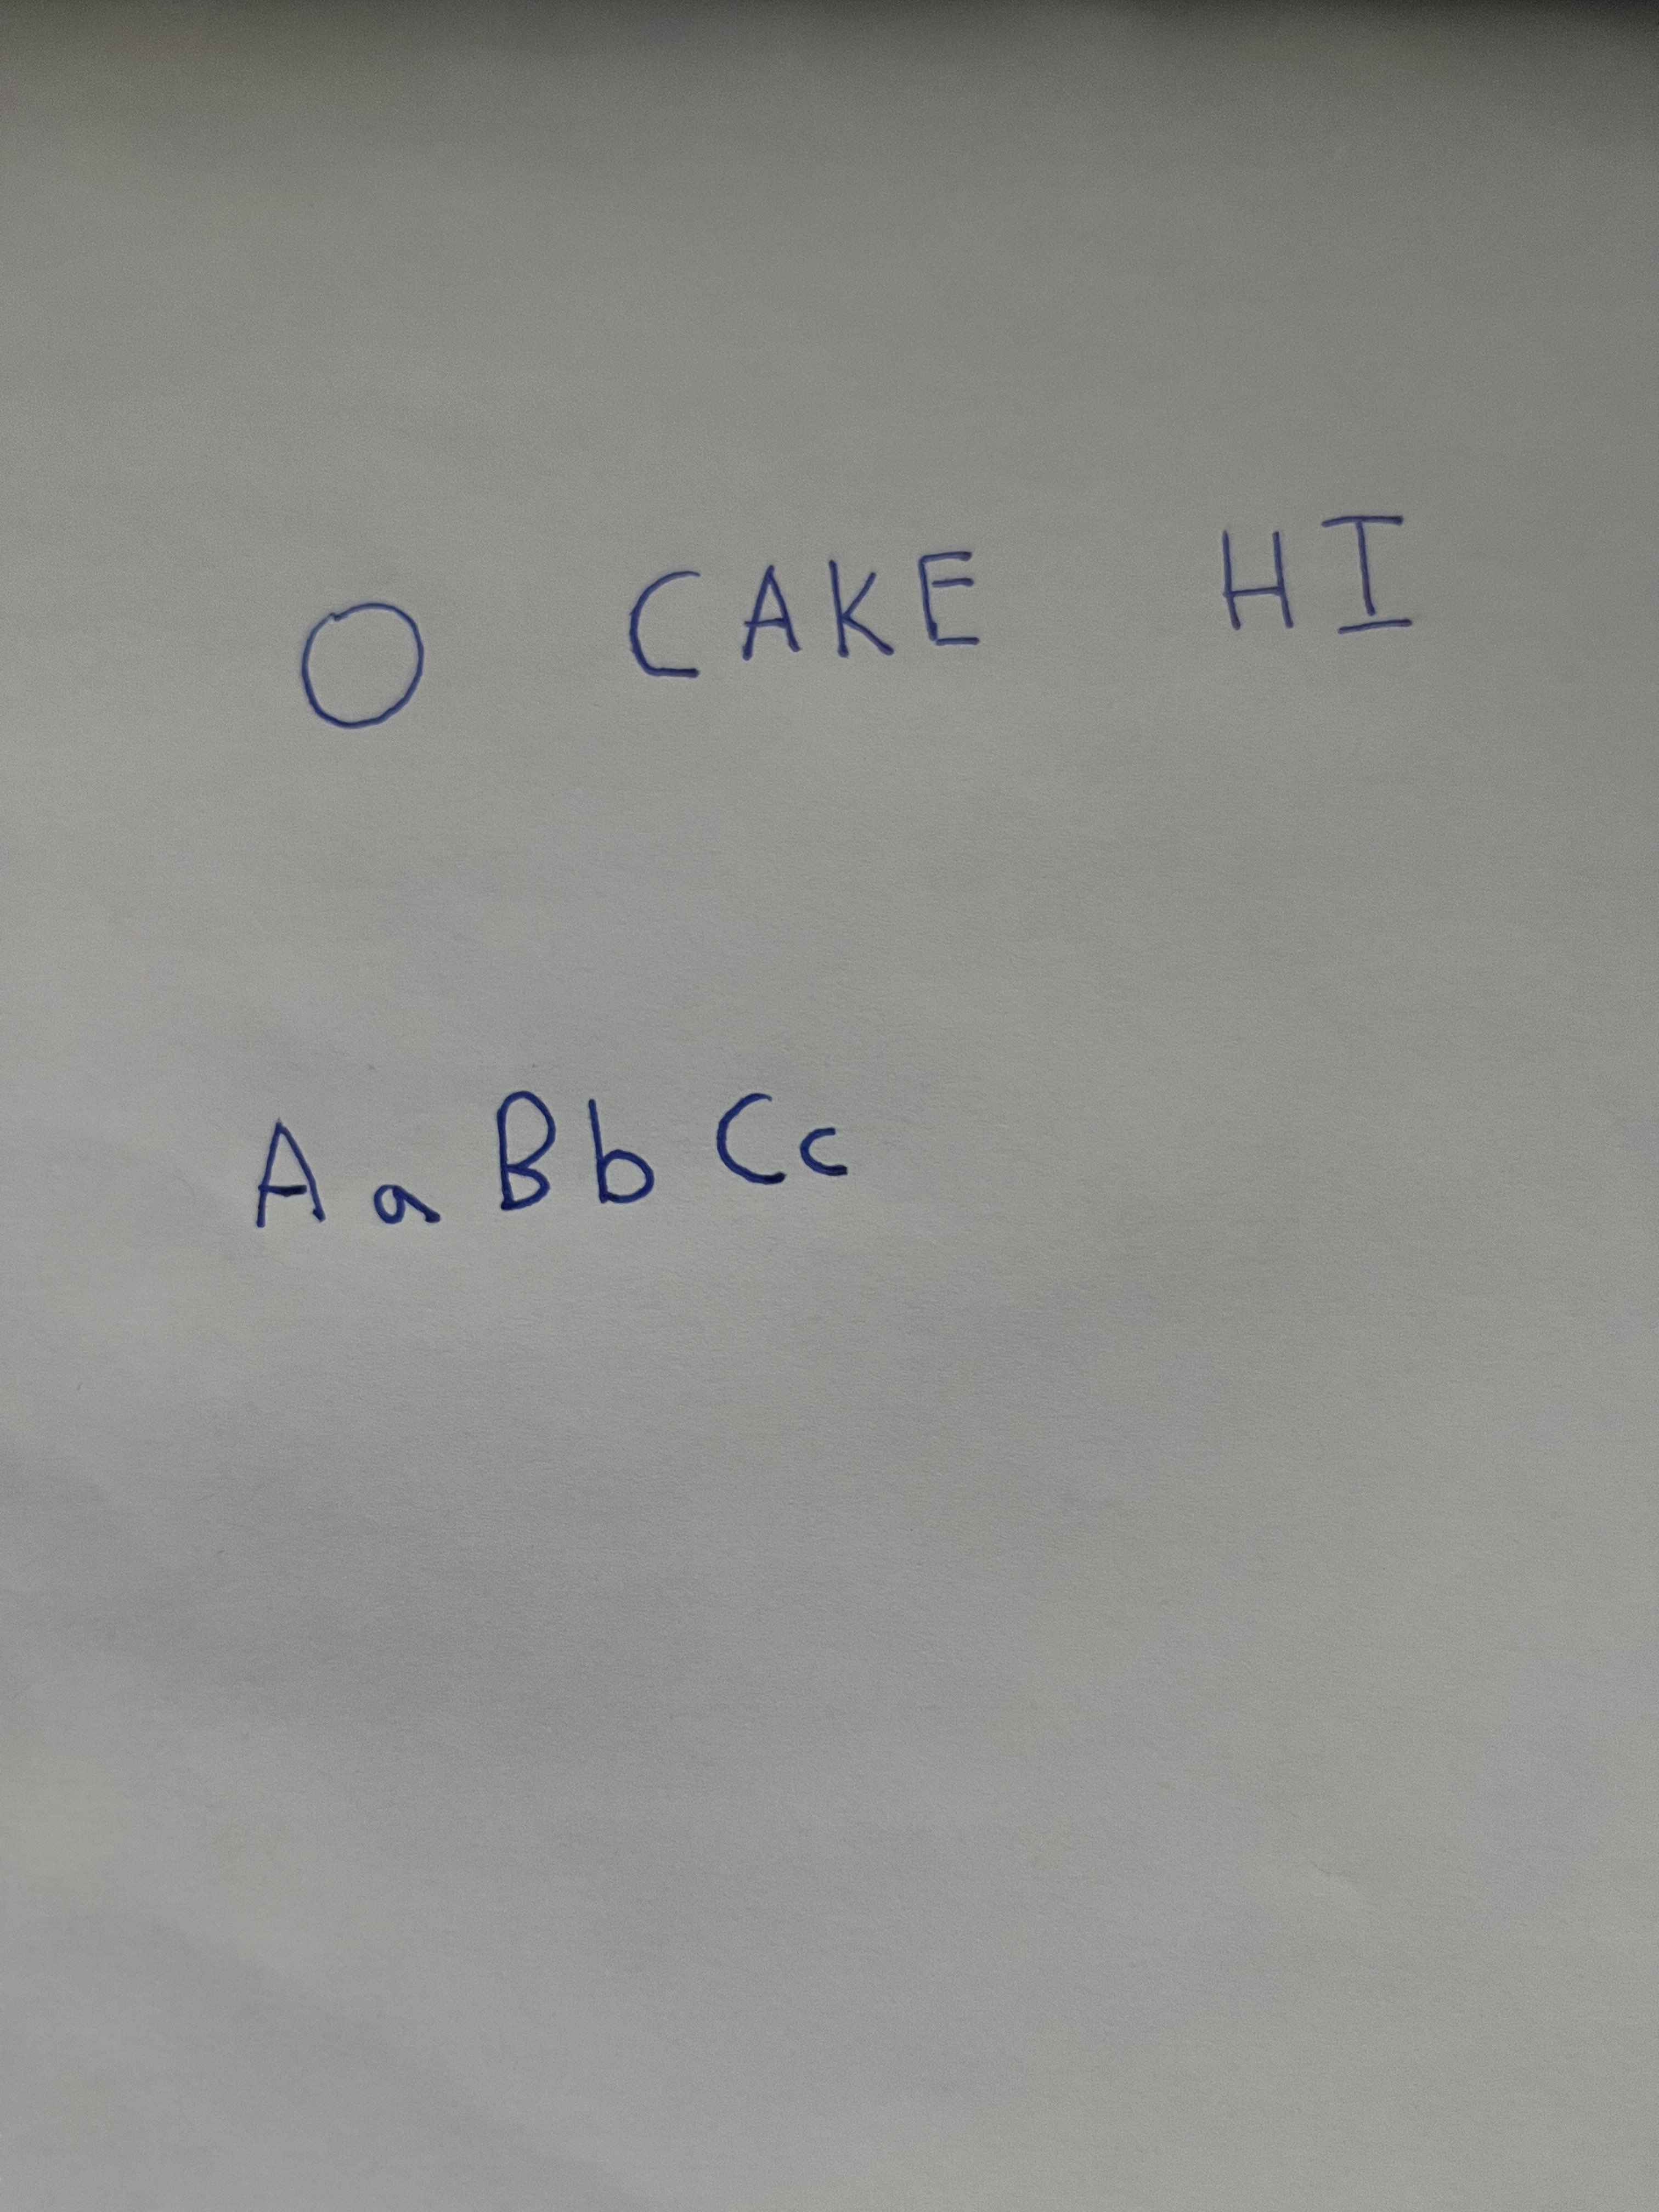 O CAKE HI
A a B b C c